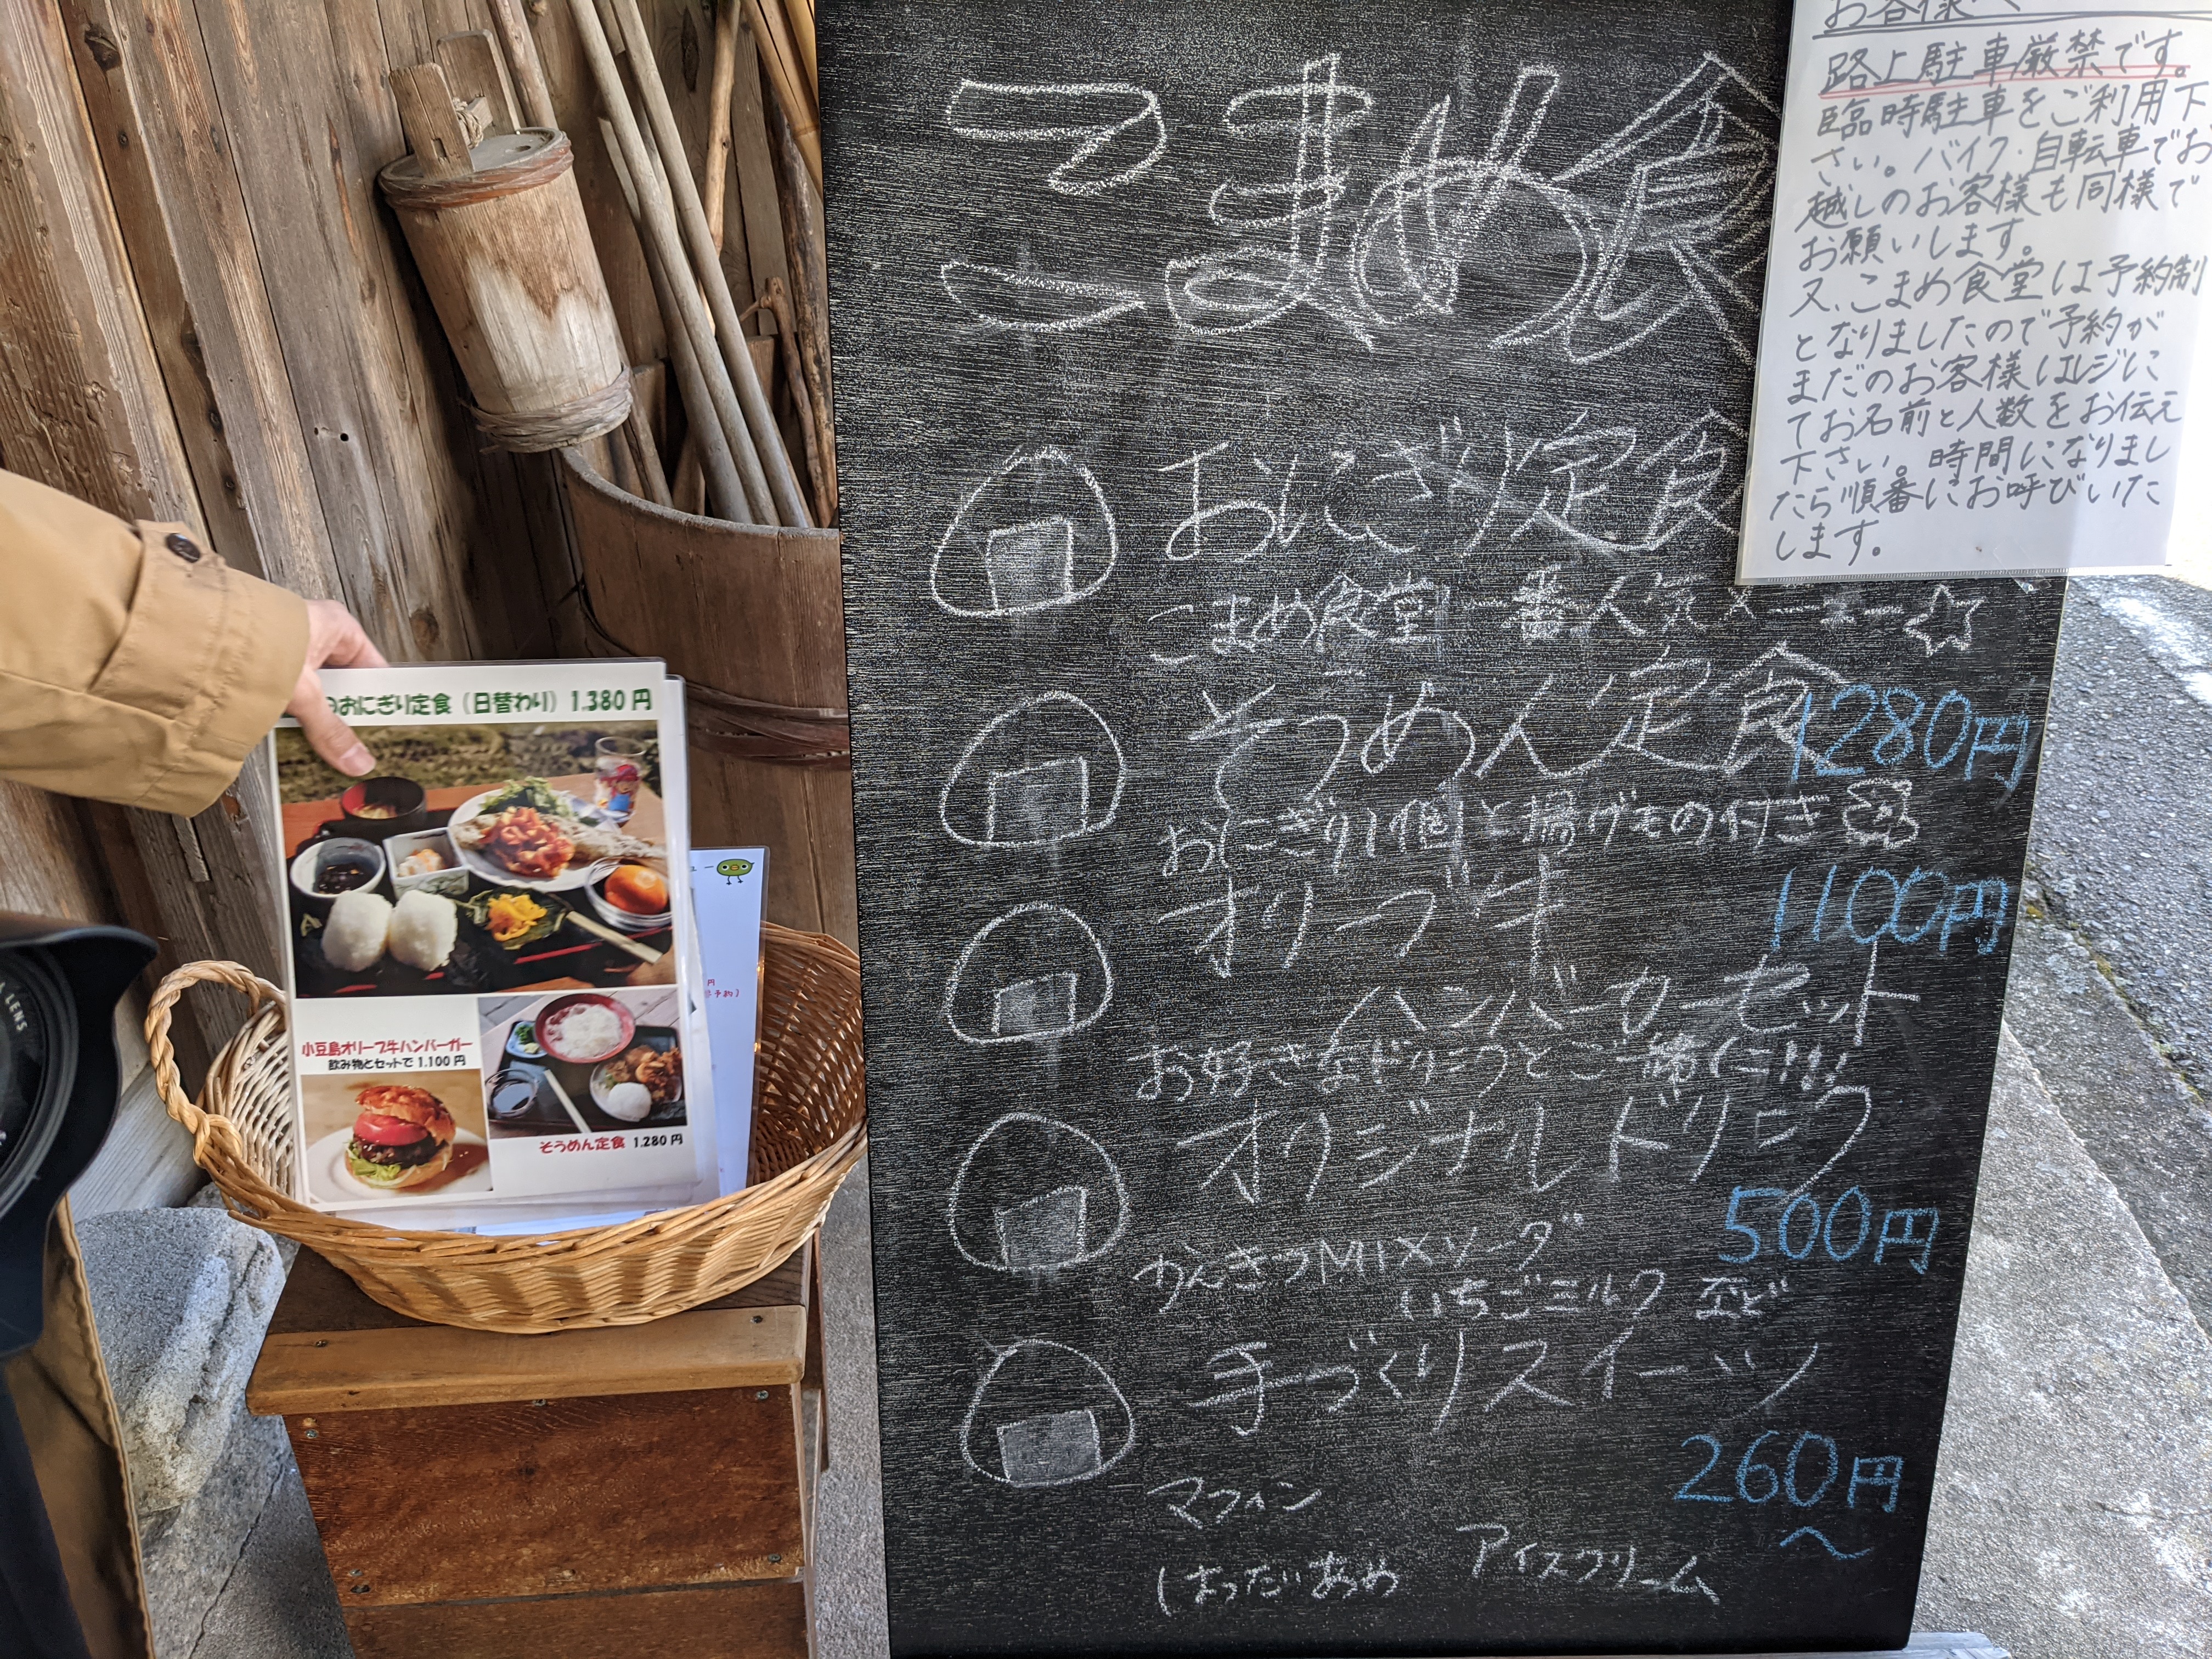 こまめ食
おにぎり定食
こまめ食堂一番人気メニュー☆
そうめん定食 1280円
おにぎり1個と揚げもの付き
オリーブ牛 1100円
ハンバーガーセット
お好きなドリンクとご一緒に!!!
オリジナルドリンク
500円
かんきつMIXソーダ
いちごミルク など
手づくりスイーツ
260円
〜
マフィン
アイスクリーム
お客様へ
路上駐車厳禁です。
臨時駐車をご利用下
さい。バイク・自転車でお
越しのお客様も同様で
お願いします。
又、こまめ食堂は予約制
となりましたので予約が
まだのお客様はレジに
てお名前と人数をお伝え
下さい。時間になりまし
たら順番にお呼びいた
します。
のおにぎり定食（日替わり）1.380円
小豆島オリーブ牛ハンバーガー
飲み物とセットで 1.100円
そうめん定食 1.280円
ュー
円
予約）
LENS